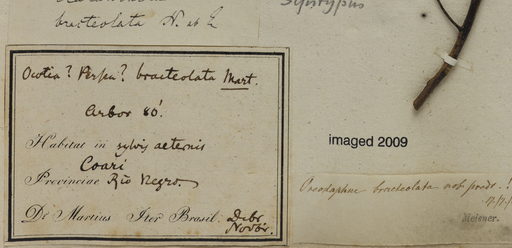 bracteolata N. ab E
Ocotia? Persea? bracteolata Mart.
Arbor 80'.
Habitat in sylvis aeternis
Coari
Provinciae Rio Negro.
De Martius Iter Brasil. Debr
Novbr.
Synotypus
imaged 2009
Oreodaphne bracteolata nob prodr. !
Meisner.